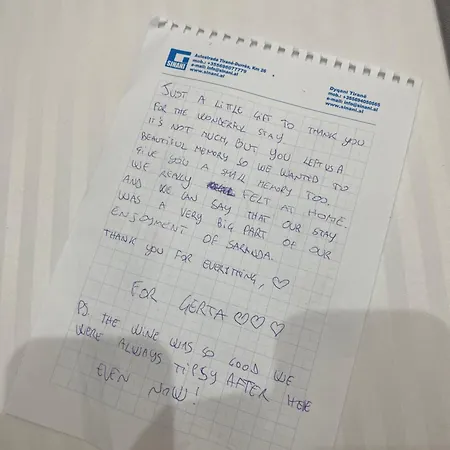 SINANI
Autostrada Tiranë-Durrës, Km 26
mob.: +355695077779
e-mail: info@sinani.al
www.sinani.al
Dyqani Tiranë
mob.: +355694050505
e-mail: info@sinani.al
www.sinani.al
JUST A LITLE GIFT TO THANK YOU
FOR THE WONDERFUL STAY
IT'S NOT MUCH, BUT YOU LEFT US A
BEAUTIFUL MEMORY SO WE WANTED TO
GIVE YOU A SMALL MEMORY TOO.
WE REALLY FELT AT HOME.
AND WE CAN SAY THAT OUR STAY
WAS A VERY BIG PART OF OUR
ENJOYMENT OF SARANDA.
THANK YOU FOR EVERYTHING, ♡
FOR GERTA ♡♡♡
PS. THE WINE WAS SO GOOD WE
WERE ALWAYS TIPSY AFTER HERE
EVEN NOW!